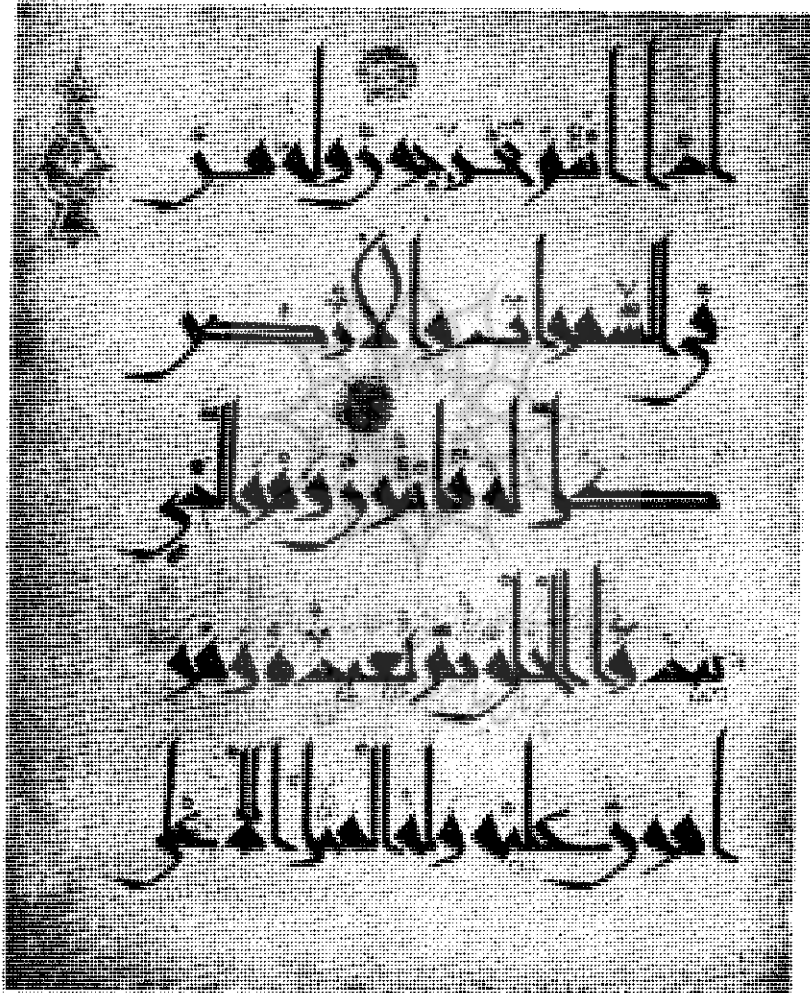 اذا انتم تخرجون وله من
في السموات والارض
كل له قانتون وهو الذي
يبدوا الخلق ثم يعيده وهو
اهون عليه وله المثل الاعلى